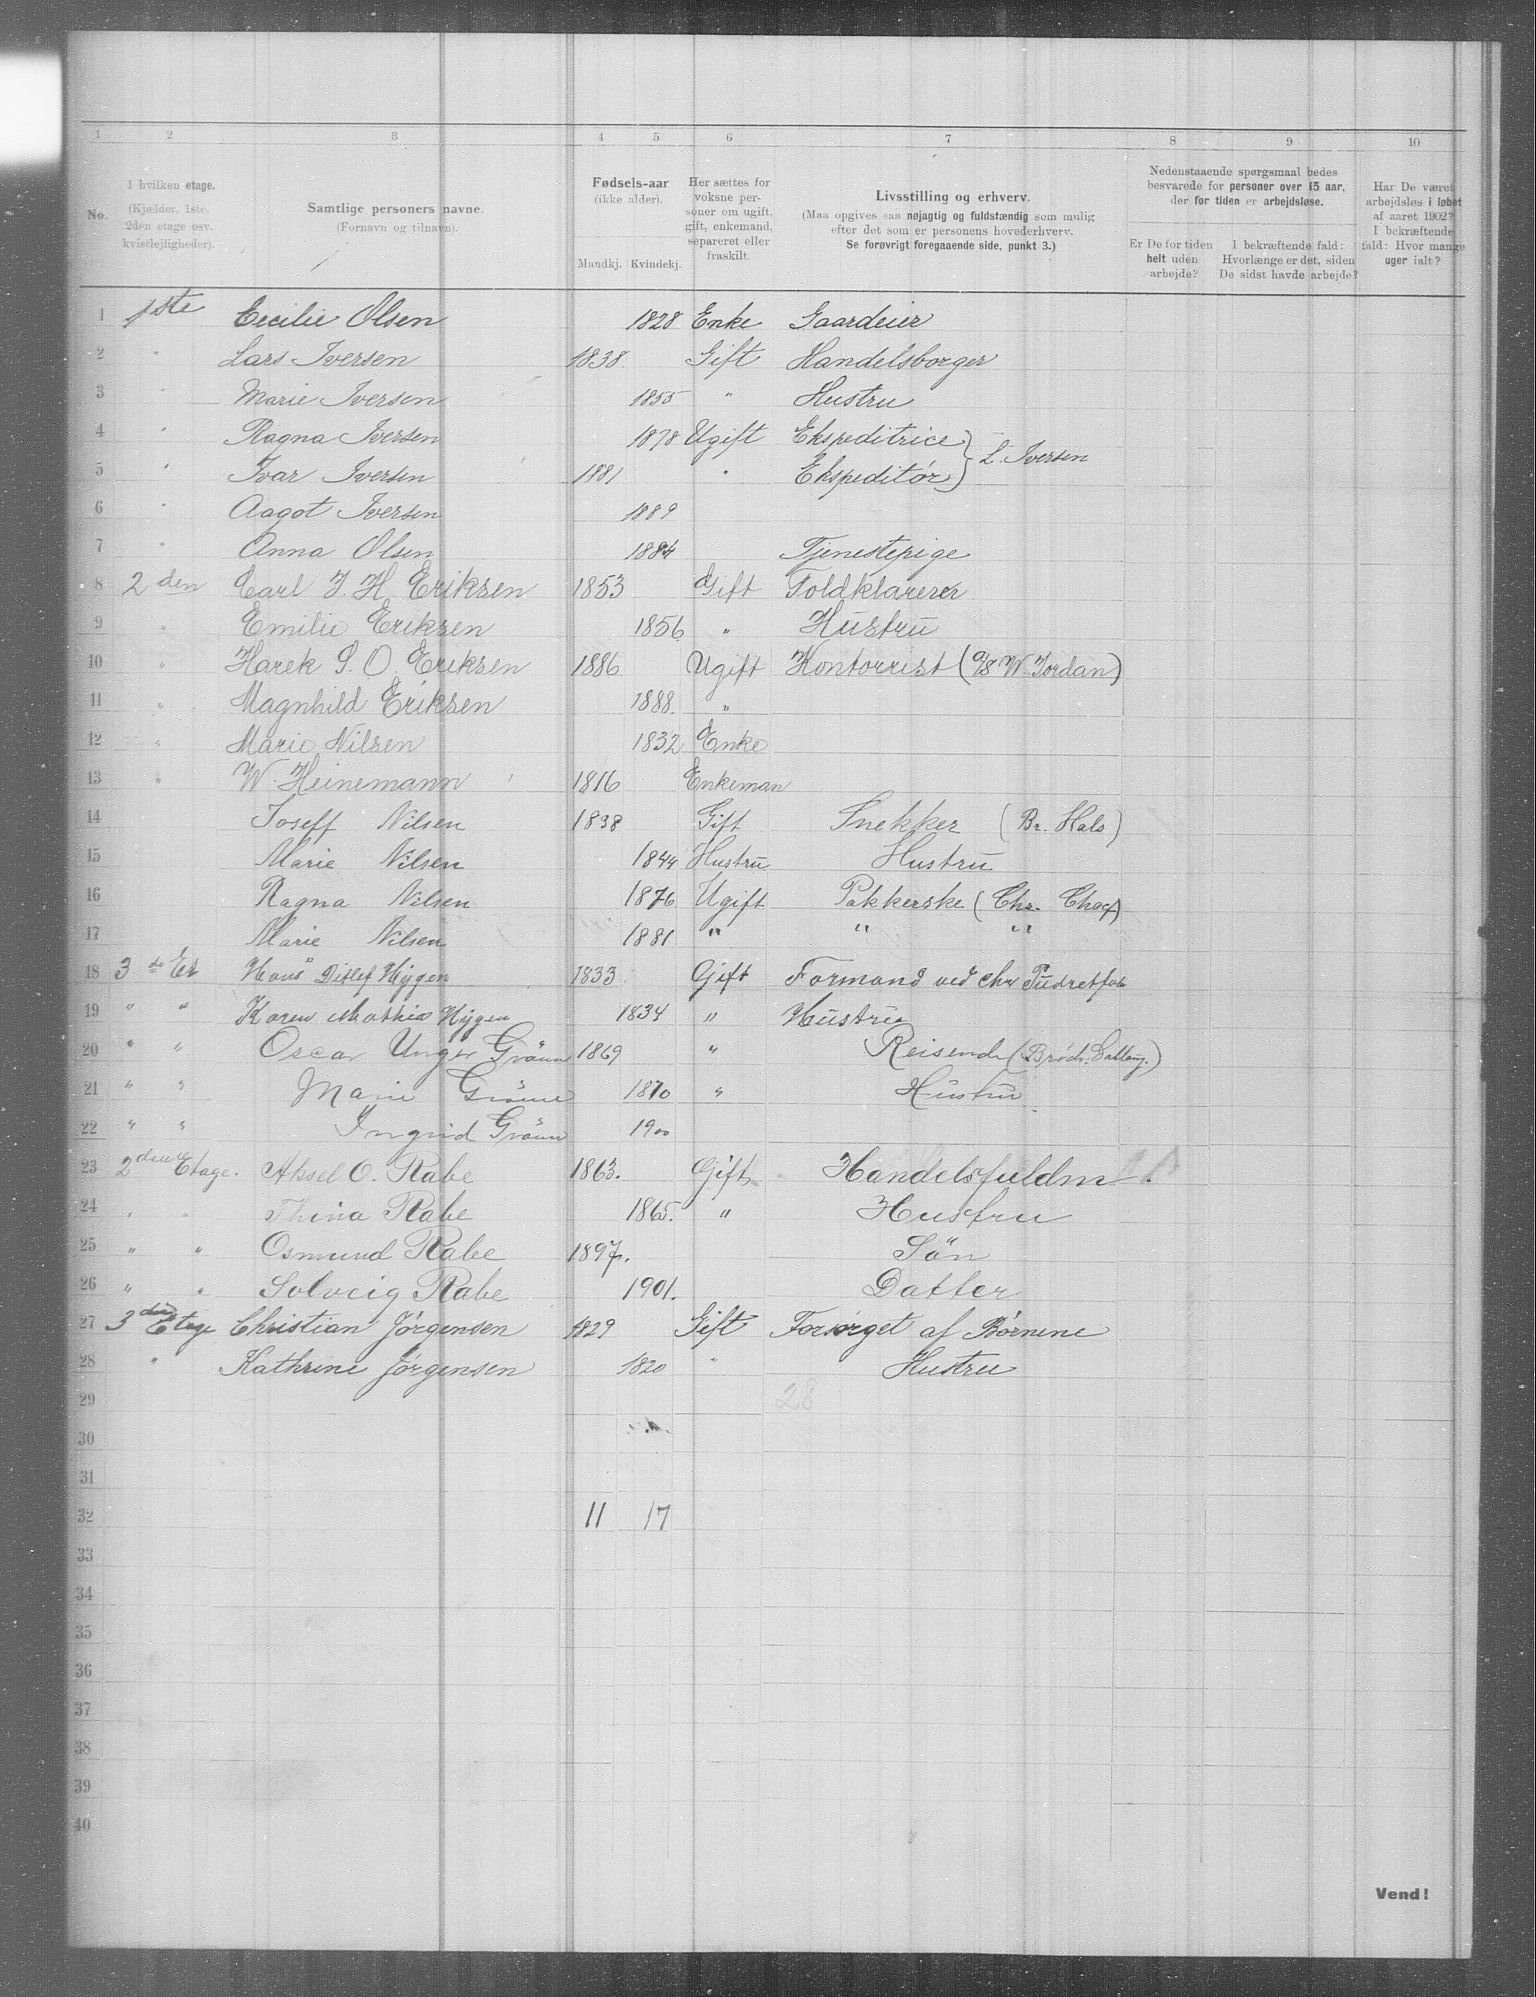 1 2 3 4 5 6 7 8 9 10
No.
I hvilken etage.
(Kjælder, 1ste.
2den etage osv.
kvistlejligheder).
Samtlige personers navne.
(Fornavn og tilnavn).
Fødsels-aar
(ikke alder).
Mandkj. Kvindekj.
Her sættes for
voksne per-
soner om ugift,
gift, enkemand,
separeret eller
fraskilt.
Livsstilling og erhverv.
(Maa opgives saa nøjagtig og fuldstændig som mulig
efter det som er personens hovederhverv.
Se forøvrigt foregaaende side, punkt 3.)
Nedenstaaende spørgsmaal bedes
besvarede for personer over 15 aar,
der for tiden er arbejdsløse.
Er De for tiden
helt uden
arbejde?
I bekræftende fald:
Hvorlænge er det, siden
De sidst havde arbejde?
Har De været
arbejdsløs i løbet
af aaret 1902?
I bekræftende
fald: Hvor mange
uger ialt?
1 1ste Cecilie Olsen 1828 Enke Gaardeier
2 " Lars Iversen 1838 Gift Handelsborger
3 " Marie Iversen 1855 " Hustru
4 " Ragna Iversen 1878 Ugift Ekspeditrice } L. Iversen
5 " Ivar Iversen 1881 " Ekspeditør }
6 " Aagot Iversen 1889
7 " Anna Olsen 1884 Tjenestepige
8 2den Carl J. H. Eriksen 1853 Gift Toldklarerer
9 " Emilie Eriksen 1856 " Hustru
10 " Harek S. O. Eriksen 1886 Ugift Kontorrist (A/S W. Jordan)
11 " Magnhild Eriksen 1888 "
12 " Marie Nilsen 1832 Enke
13 " W. Heinemann 1816 Enkeman
14 Joseff Nilsen 1838 Gift Snekker (Br. Hals)
15 Marie Nilsen 1844 Hustru Hustru
16 Ragna Nilsen 1876 Ugift Pakkerske (Chr.
17 Marie Nilsen 1881 " " "
18 3de Et Hans Ditlef Hygen 1833 Gift Formand ved Chr Pudretfab
19 " " Karen Mathia Hygen 1834 " Hustru
20 " " Oscar Unger Grönn 1869 " Reisende (Brødr.
21 " " Marie Grönn 1870 " Hustru
22 " " Ingrid Grönn 1900
23 2den Etage. Aksel O. Rabe 1863. Gift Handelsfuldm.
24 " " Thina Rabe 1865. " Hustru
25 " " Osmund Rabe 1897. Sön
26 " " Solveig Rabe 1901. Datter
27 3die Etage Christian Jørgensen 1829 Gift Forsørget af Børnene
28 " Kathrine Jørgensen 1820 " Hustru
29 28
30
31
32 11 17
33
34
35
36
37
38
39
40
Vend!